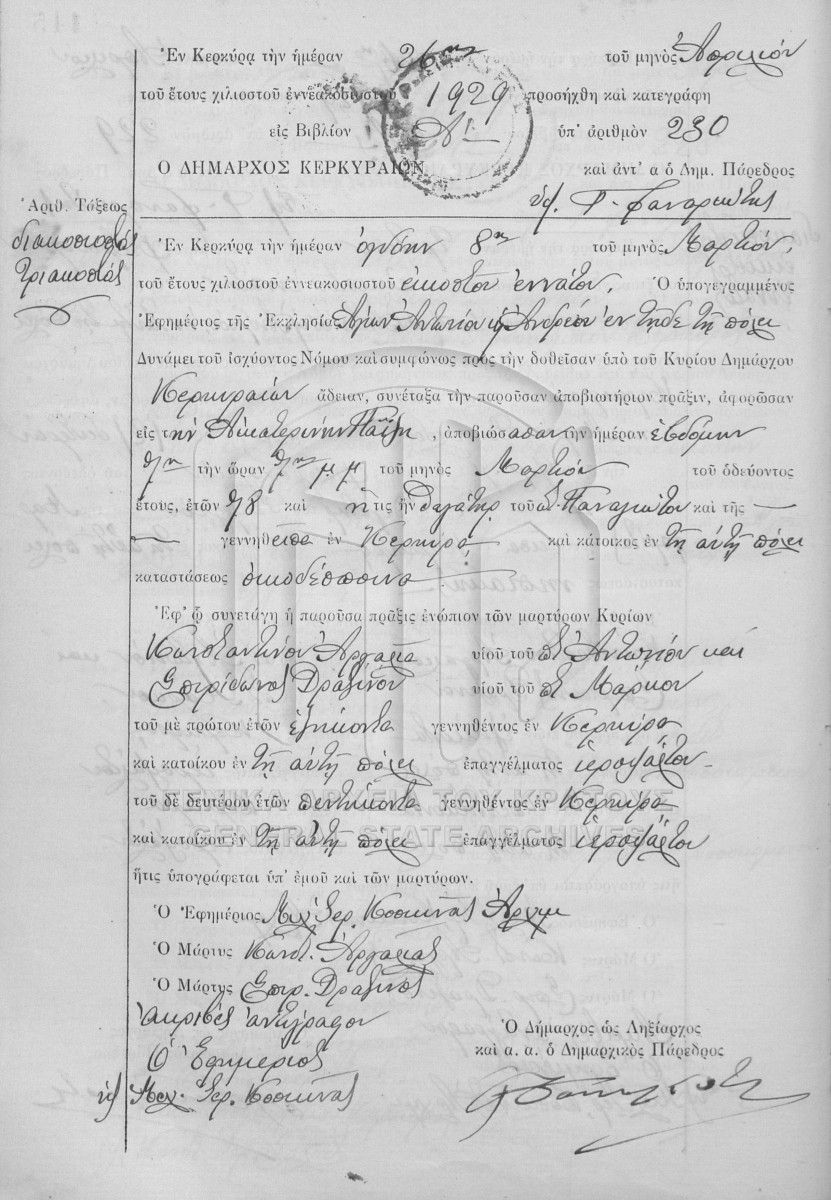 Ἐν Κερκύρᾳ τὴν ἡμέραν 26ην τοῦ μηνὸς Ἀπριλίου
τοῦ ἔτους χιλιοστοῦ ἐννεακοσιοστοῦ 1929 προσήχθη καὶ κατεγράφη
εἰς Βιβλίον Α′ ὑπ' ἀριθμὸν 230
Ο ΔΗΜΑΡΧΟΣ ΚΕΡΚΥΡΑΙΩΝ καὶ ἀντ' α ὁ Δημ. Πάρεδρος
Φαναριώτης
Ἀριθ. Τάξεως
διακοσιοστὸς
τριακοστὸς
Ἐν Κερκύρᾳ τὴν ἡμέραν ὀγδόην 8ην τοῦ μηνὸς Μαρτίου,
τοῦ ἔτους χιλιοστοῦ ἐννεακοσιοστοῦ εἰκοστοῦ ἐννάτου, Ὁ ὑπογεγραμμένος
Ἐφημέριος τῆς Ἐκκλησίας Ἁγίων Ἀντωνίου κ Ἀνδρέου ἐν τῇδε τῇ πόλει
Δυνάμει τοῦ ἰσχύοντος Νόμου καὶ συμφώνως πρὸς τὴν δοθεῖσαν ὑπὸ τοῦ Κυρίου Δημάρχου
Κερκυραίων ἄδειαν, συνέταξα τὴν παροῦσαν ἀποβιωτήριον πρᾶξιν, ἀφορῶσαν
εἰς τὴν Αἰκατερίνην Παΐζη, ἀποβιώσασαν τὴν ἡμέραν ἑβδόμην
7ην τὴν ὥραν 7ην μ μ τοῦ μηνὸς Μαρτίου τοῦ ὁδεύοντος
ἔτους, ἐτῶν 78 καὶ ἥτις ἦν θυγάτηρ τοῦ Παναγιώτου καὶ τῆς —
— γεννηθεῖσα ἐν Κερκύρᾳ καὶ κάτοικος ἐν τῇ αὐτῇ πόλει
καταστάσεως οἰκοδέσποινα
Ἐφ' ᾧ συνετάγη ἡ παροῦσα πρᾶξις ἐνώπιον τῶν μαρτύρων Κυρίων
Κωνσταντίνου Ἀργαλιᾶ υἱοῦ τοῦ Ἀντωνίου καὶ
Σπυρίδωνος Δραζίνου υἱοῦ τοῦ Μάρκου
τοῦ μὲ πρώτου ἐτῶν ἑξήκοντα γεννηθέντος ἐν Κερκύρᾳ
καὶ κατοίκου ἐν τῇ αὐτῇ πόλει ἐπαγγέλματος ἱεροψάλτου
τοῦ δὲ δευτέρου ἐτῶν πεντήκοντα γεννηθέντος ἐν Κερκύρᾳ
ΓΕΝΙΚΑ ΑΡΧΕΙΑ ΤΟΥ ΚΡΑΤΟΥΣ
GENERAL STATE ARCHIVES
καὶ κατοίκου ἐν τῇ αὐτῇ πόλει ἐπαγγέλματος ἱεροψάλτου
ἥτις ὑπογράφεται ὑπ' ἐμοῦ καὶ τῶν μαρτύρων.
Ὁ Ἐφημέριος Μιχ. Ἱερ. Κοσκινᾶς
Ὁ Μάρτυς Κωνστ. Ἀργαλιᾶς
Ὁ Μάρτυς Σπυρ. Δραζίνος
Ἀκριβὲς ἀντίγραφον
Ὁ Ἐφημέριος
Μιχ. Ἱερ. Κοσκινᾶς
Ὁ Δήμαρχος ὡς Ληξίαρχος
καὶ α. α. ὁ Δημαρχικὸς Πάρεδρος